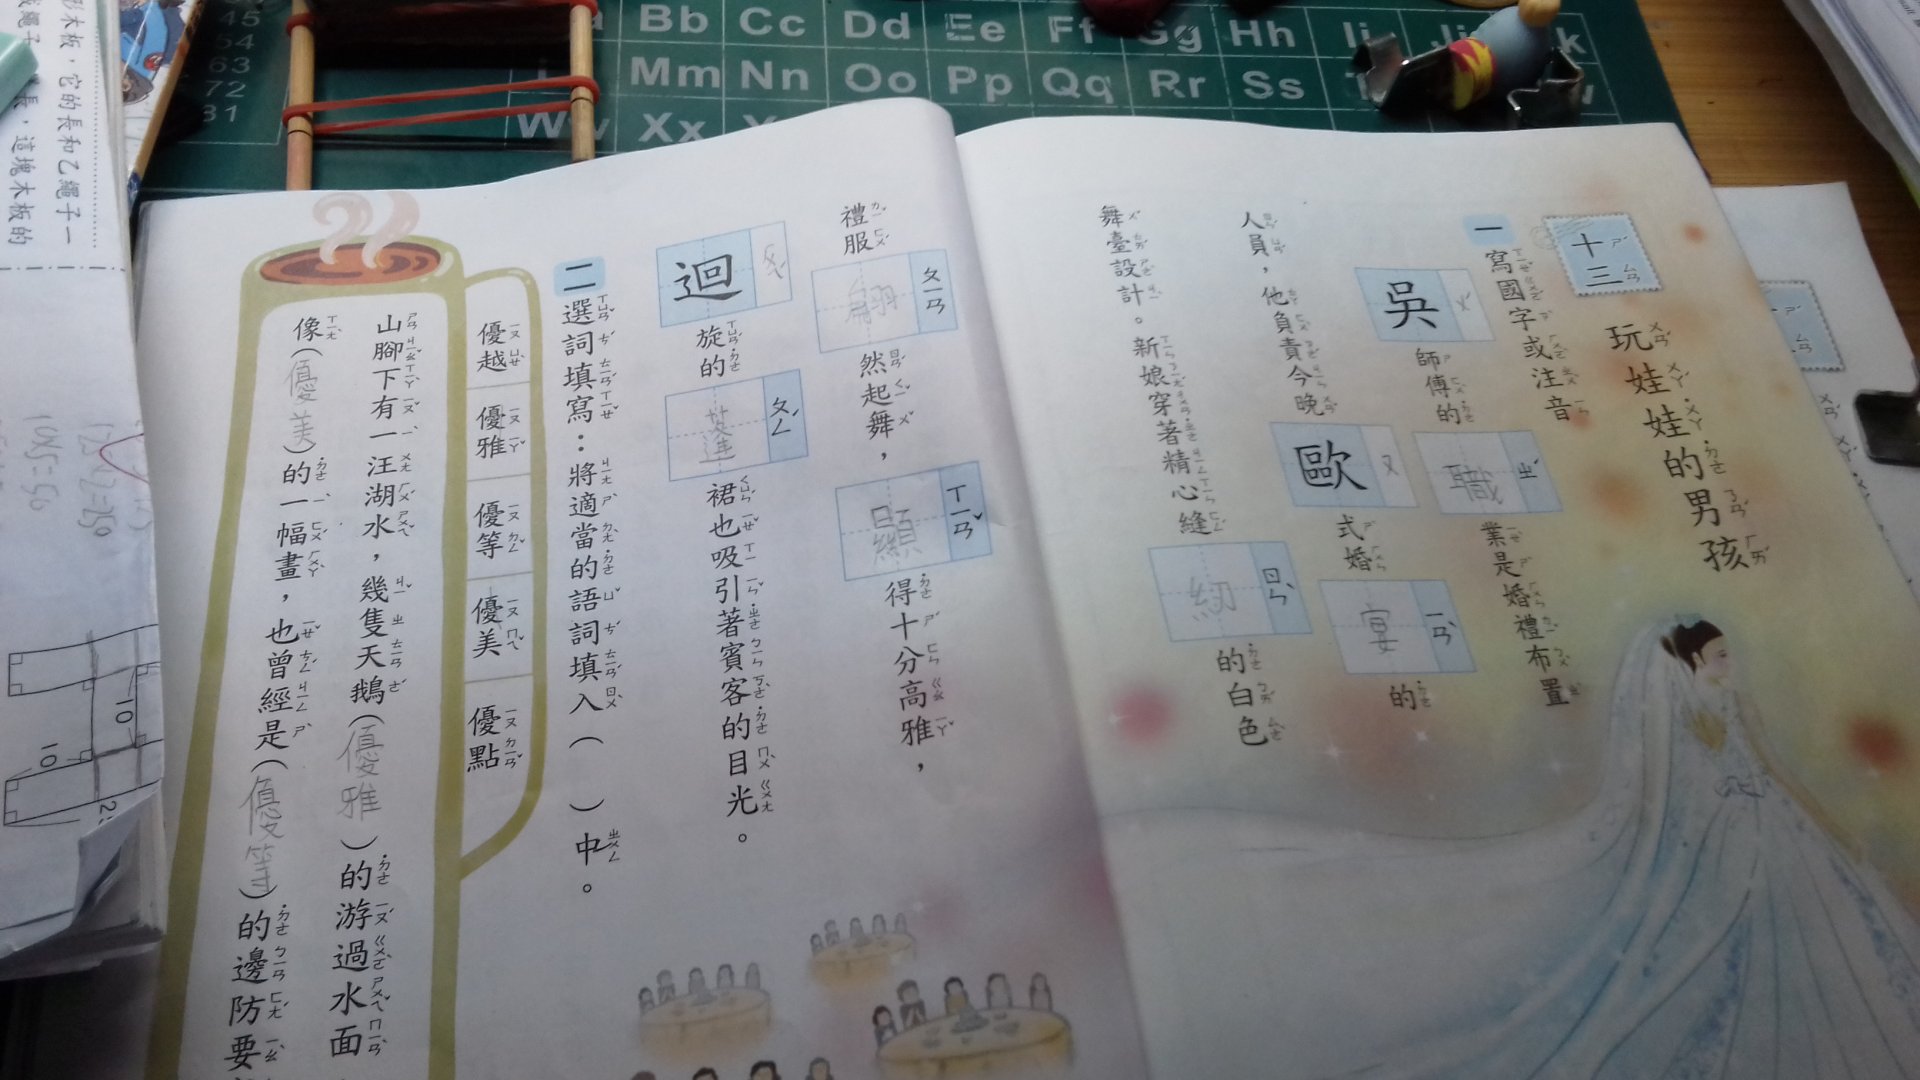 十三
玩娃娃的男孩
一 寫國字或注音
吳ㄨˊ師傅的職ㄓˊ業是婚禮布置
人員，他負責今晚歐ㄡ式婚宴ㄧㄢˋ的
舞臺設計。新娘穿著精心縫紉ㄖㄣˋ的白色
禮服翩ㄆㄧㄢ然起舞，顯ㄒㄧㄢˇ得十分高雅，
迴ㄏㄨㄟˊ旋的蓬ㄆㄥˊ裙也吸引著賓客的目光。
二 選詞填寫：將適當的語詞填入（ ）中。
優越 優雅 優等 優美 優點
山腳下有一汪湖水，幾隻天鵝（優雅）的游過水面
像（優美）的一幅畫，也曾經是（優等）的邊防要
形木板，它的長和乙繩子一
長，這塊木板的
Bb Cc Dd Ee Ff Gg Hh Ii
Mm Nn Oo Pp Qq Rr Ss
Ww Xx
54
63
72
81
10
10